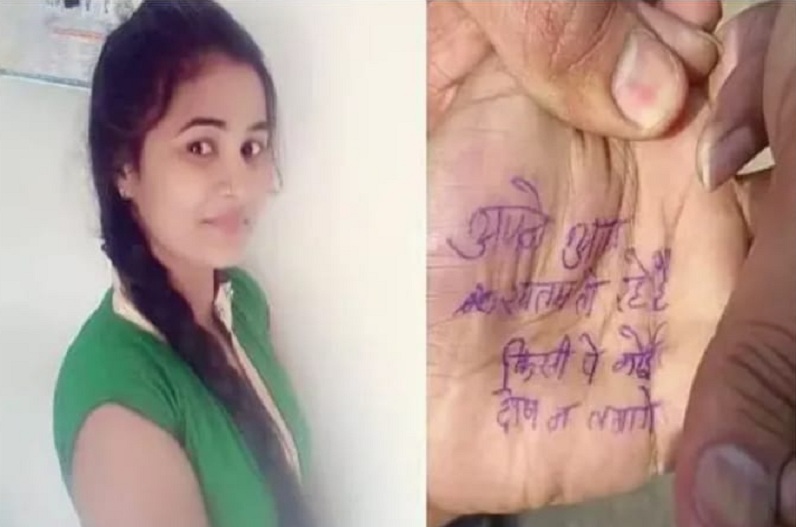 अपने आप
खत्म हो रहे है
किसी पे कोई
दोष न लगाये